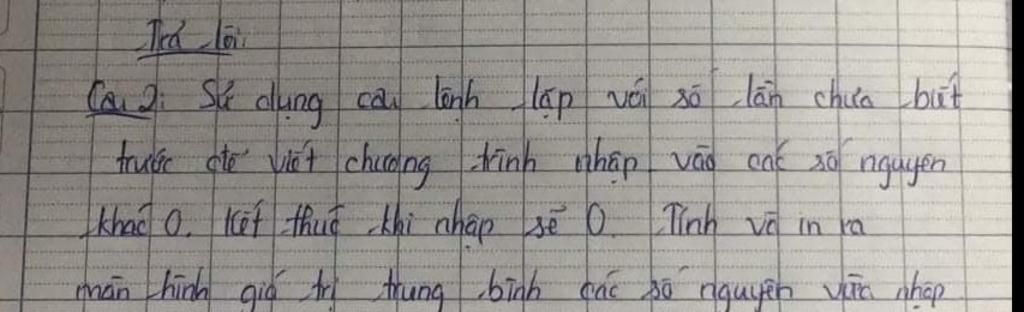 Trả lời:
Câu 2: Sử dụng câu lệnh lặp với số lần chưa biết
trước để viết chương trình nhập vào các số nguyên
khác 0. Kết thúc khi nhập số 0. Tính và in ra
màn hình giá trị trung bình các số nguyên vừa nhập